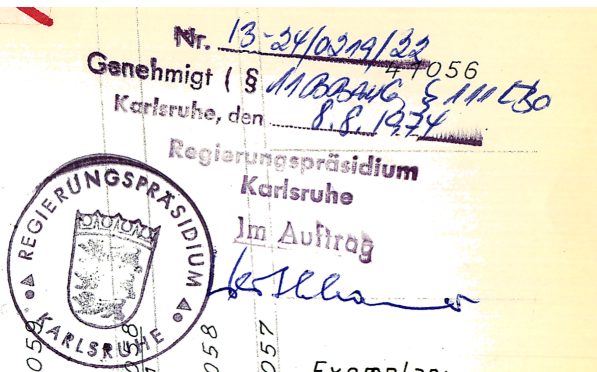 Nr. 13-24/0219/22
47056
Genehmigt ( § 11 BBauG, § 111 LBO
Karlsruhe, den 8.8.1974
Regierungspräsidium
Karlsruhe
Im Auftrag
REGIERUNGSPRÄSIDIUM
KARLSRUHE
059
058
058
057
Exemplar